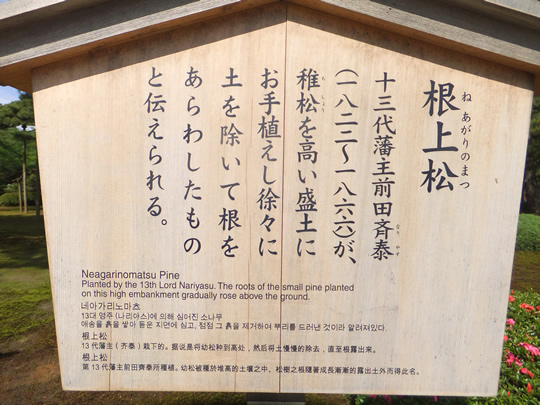 ね あがりのまつ
根上松
十三代藩主前田斉泰
なり やす
(一八二二〜一八六六)が、
稚松を高い盛土に
しょう
お手植えし徐々に
土を除いて根を
あらわしたもの
と伝えられる。
Neagarinomatsu Pine
Planted by the 13th Lord Nariyasu. The roots of the small pine planted
on this high embankment gradually rose above the ground.
네아가리노마츠
13대 영주 (나리야스)에 의해 심어진 소나무
애송을 흙을 쌓아 돋운 지면에 심고, 점점 그 흙을 제거하여 뿌리를 드러낸 것이라 알려져있다.
根上松
13代藩主（齐泰）栽下的。据说是将幼松种到高处，然后将土慢慢的除去，直至根露出来。
根上松
第13代藩主前田齊泰所種植。幼松被種於堆高的土壤之中，松樹之根隨著成長漸漸的露出土外而得此名。